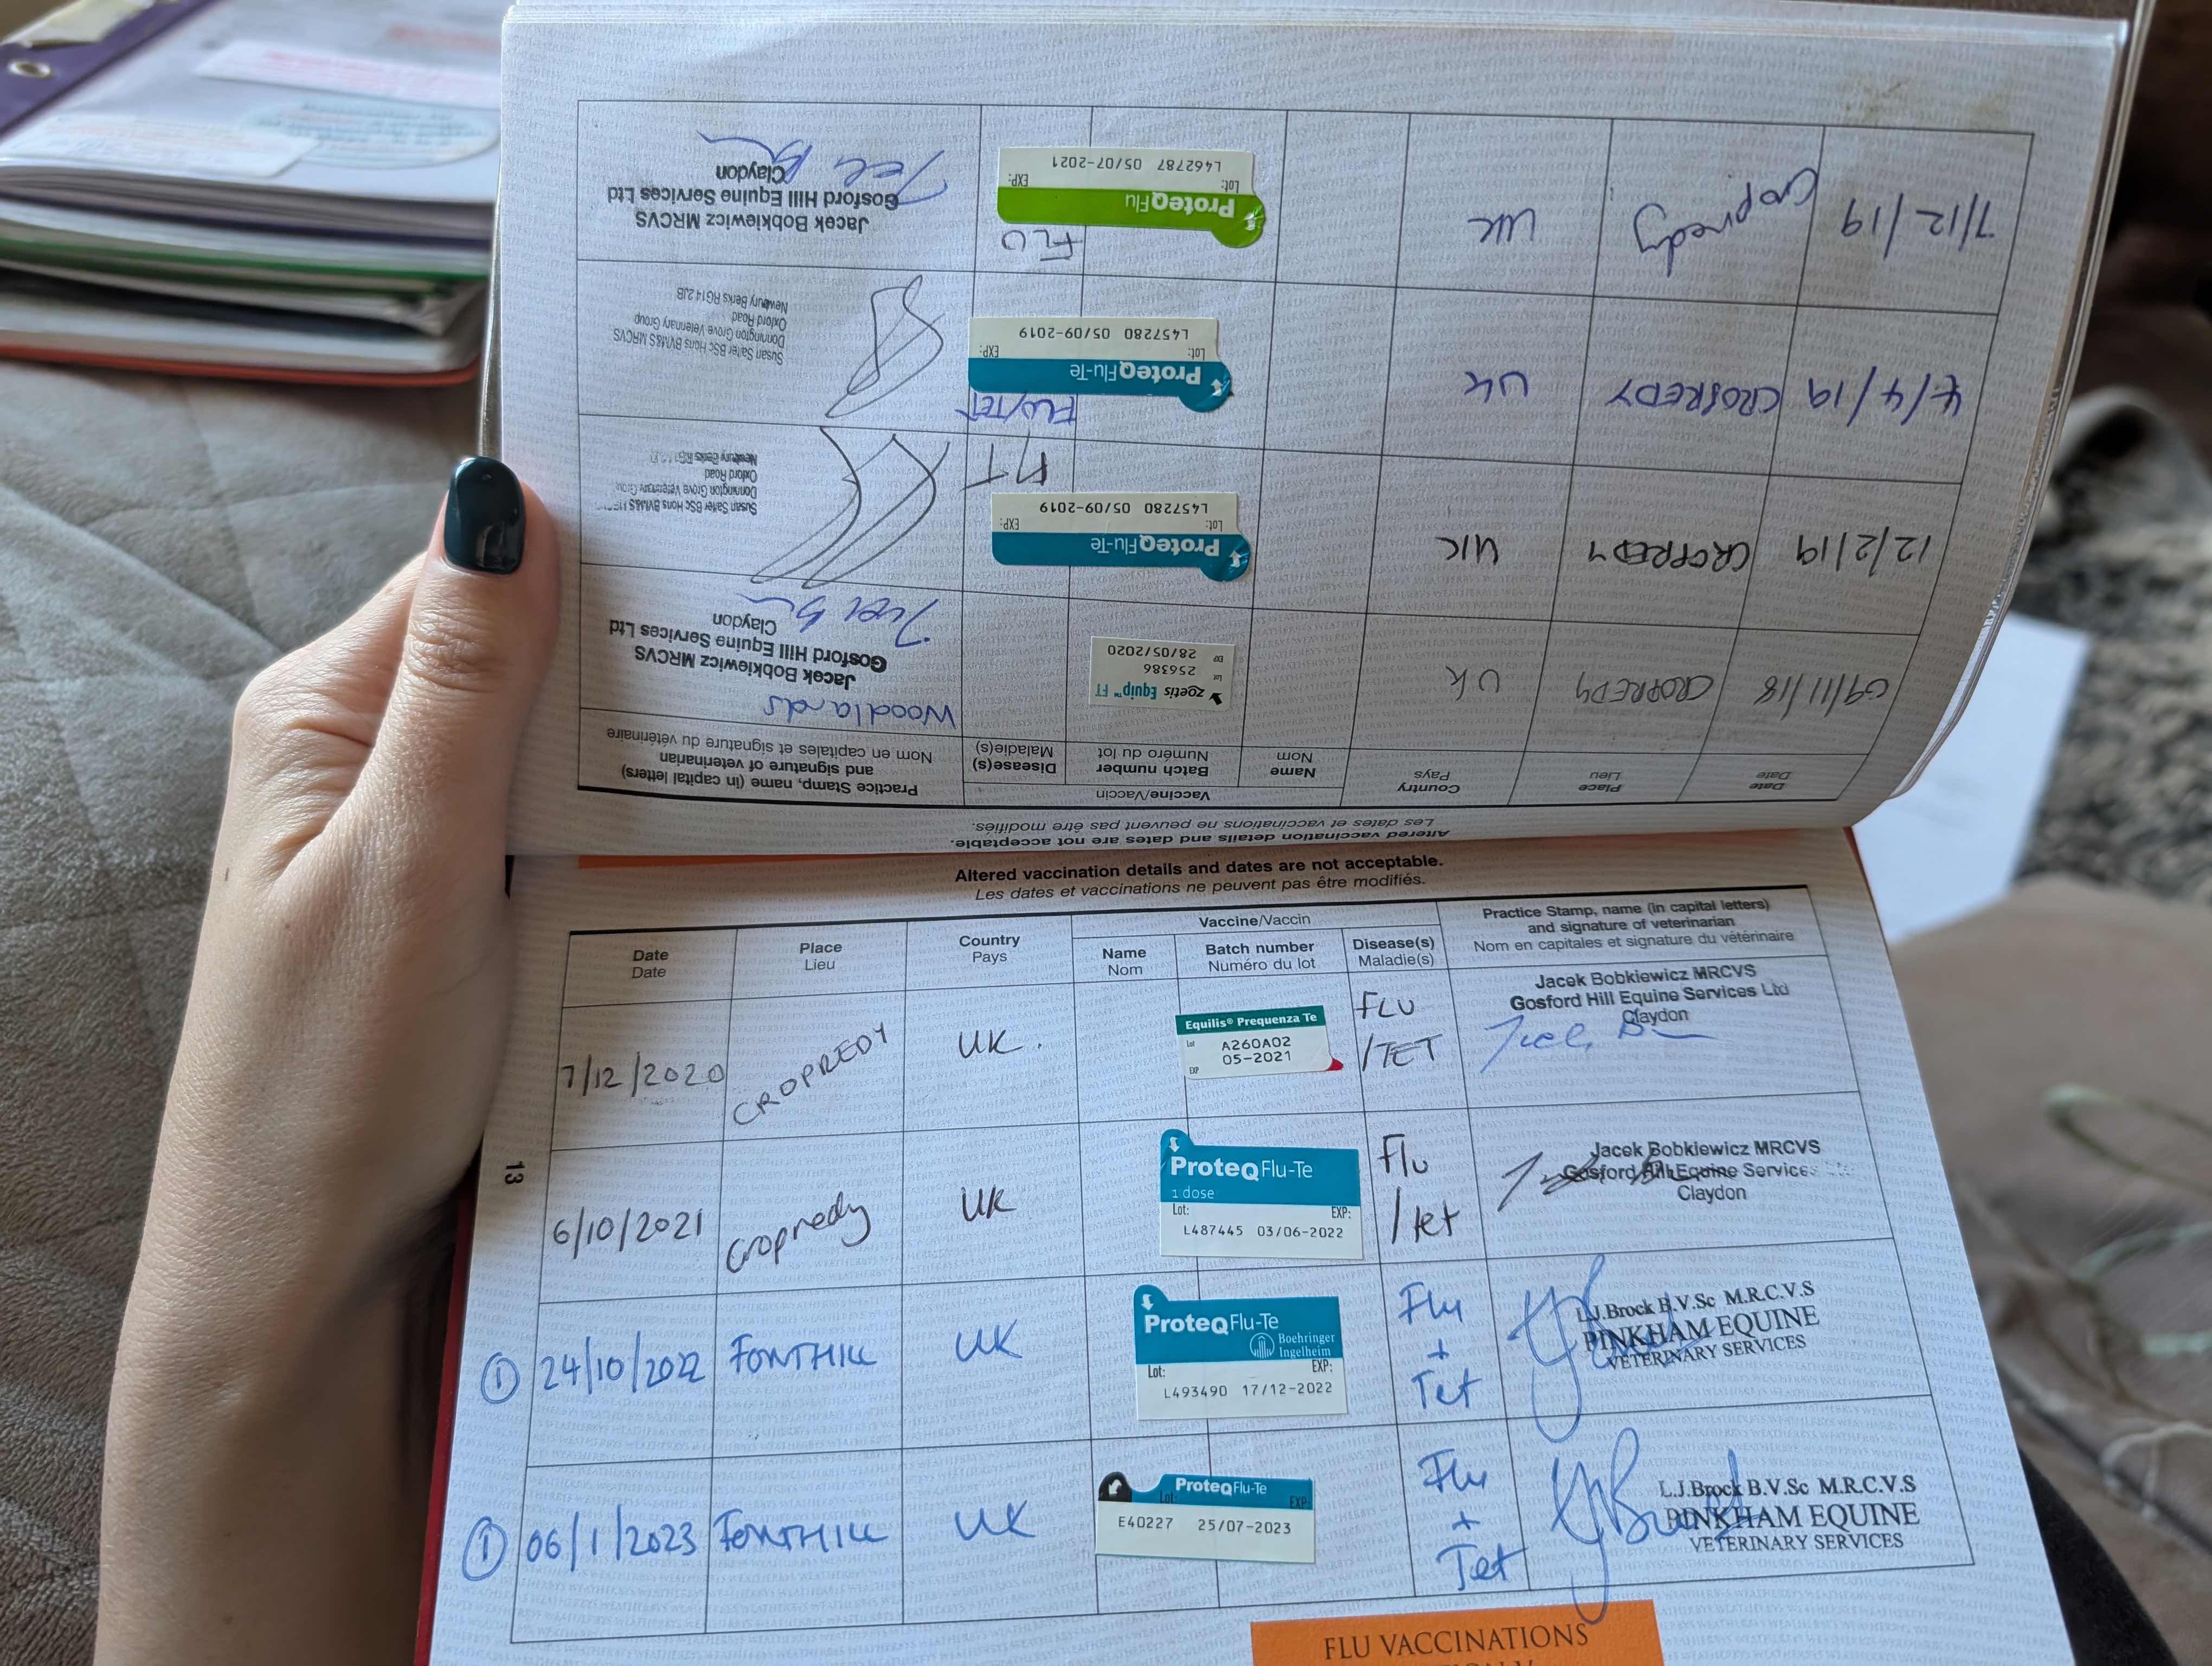 Altered vaccination details and dates are not acceptable.
Les dates et vaccinations ne peuvent pas être modifiés.
Date
Date
Place
Lieu
Country
Pays
Vaccine/Vaccin
Name
Nom
Batch number
Numéro du lot
Disease(s)
Maladie(s)
Practice Stamp, name (in capital letters)
and signature of veterinarian
Nom en capitales et signature du vétérinaire
09/11/18
CROPREDY
UK
zoetis Equip™ FT
Lot 256386
EXP 28/05/2020
Woodlands
Jacek Bobkiewicz MRCVS
Gosford Hill Equine Services Ltd
Claydon
12/2/19
CROPREDY
UK
ProteqFlu-Te
Lot: EXP:
L457280 05/09-2019
Susan Salter BSc Hons BVM&S MRCVS
Donnington Grove Veterinary Group
Oxford Road
Newbury Berks
4/4/19
CROPREDY
UK
FLU/TET
ProteqFlu-Te
Lot: EXP:
L457280 05/09-2019
Susan Salter BSc Hons BVM&S MRCVS
Donnington Grove Veterinary Group
Oxford Road
Newbury Berks RG14 2JB
7/12/19
Cropredy
UK
FLU
ProteqFlu
Lot: EXP:
L462787 05/07-2021
Jacek Bobkiewicz MRCVS
Gosford Hill Equine Services Ltd
Claydon
Altered vaccination details and dates are not acceptable.
Les dates et vaccinations ne peuvent pas être modifiés.
Date
Date
Place
Lieu
Country
Pays
Vaccine/Vaccin
Name
Nom
Batch number
Numéro du lot
Disease(s)
Maladie(s)
Practice Stamp, name (in capital letters)
and signature of veterinarian
Nom en capitales et signature du vétérinaire
7/12/2020
CROPREDY
UK.
Equilis® Prequenza Te
Lot A260A02
EXP 05-2021
FLU
/TET
Jacek Bobkiewicz MRCVS
Gosford Hill Equine Services Ltd
Claydon
13
6/10/2021
Cropredy
UK
ProteqFlu-Te
1 dose
Lot: EXP:
L487445 03/06-2022
Flu
/tet
Jacek Bobkiewicz MRCVS
Gosford Hill Equine Services
Claydon
① 24/10/2022
FONTHILL
UK
ProteqFlu-Te
Boehringer
Ingelheim
Lot: EXP:
L493490 17/12-2022
Flu
+
Tet
L.J.Brock B.V.Sc M.R.C.V.S
PINKHAM EQUINE
VETERINARY SERVICES
① 06/1/2023
FONTHILL
UK
ProteqFlu-Te
Lot EXP:
E40227 25/07-2023
Flu
+
Tet
L.J.Brock B.V.Sc M.R.C.V.S
PINKHAM EQUINE
VETERINARY SERVICES
FLU VACCINATIONS